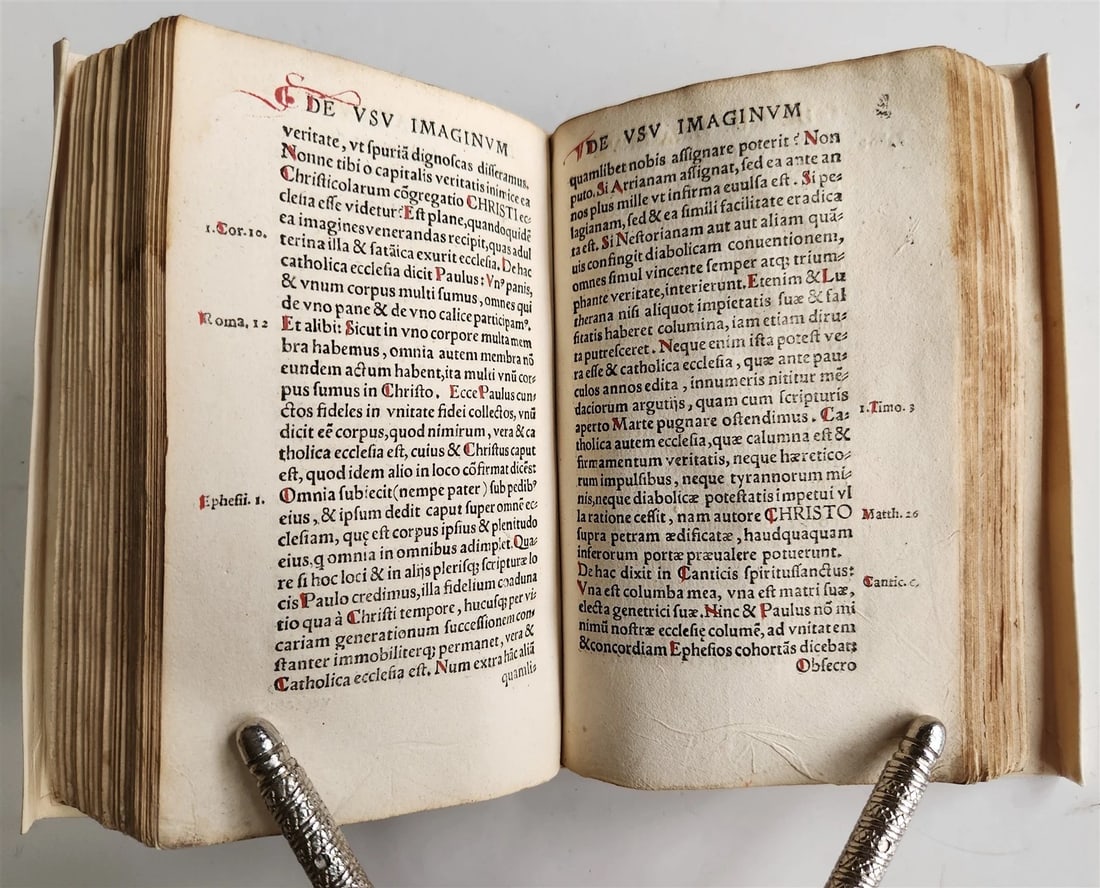 DE VSV IMAGINVM
veritate, vt spuriã dignoscas disseramus.
Nonne tibi o capitalis veritatis inimice ea
Christicolarum cõgregatio CHRISTI ec-
clesia esse videtur? Est plane, quandoquidẽ
ea imagines venerandas recipit, quas adul
terina illa & satãica exurit ecclesia. De hac
1. Cor. 10.
catholica ecclesia dicit Paulus: Vn⁹ panis,
& vnum corpus multi sumus, omnes qui
de vno pane & de vno calice participam⁹.
Roma. 12
Et alibi: Sicut in vno corpore multa mem
bra habemus, omnia autem membra nõ
eundem actum habent, ita multi vnũ cor-
pus sumus in Christo. Ecce Paulus cun-
ctos fideles in vnitate fidei collectos, vnũ
dicit eẽ corpus, quod nimirum, vera & ca
tholica ecclesia est, cuius & Christus caput
est, quod idem alio in loco cõfirmat dicẽs:
Ephesii. 1.
Omnia subiecit (nempe pater) sub pedib⁹
eius, & ipsum dedit caput super omnẽ ec-
clesiam, quę est corpus ipsius & plenitudo
eius, q omnia in omnibus adimplet. Qua-
re si hoc loci & in alijs plerisq; scripturæ lo
cis Paulo credimus, illa fidelium coaduna
tio qua à Christi tempore, hucusq; per vi-
cariam generationum successionem con-
stanter immobiliterq; permanet, vera &
Catholica ecclesia est. Num extra hãc aliã
quamli-
DE VSV IMAGINVM
quamlibet nobis assignare poterit? Non
puto. Si Arrianam assignat, sed ea ante an
nos plus mille vt infirma euulsa est. Si pe-
lagianam, sed & ea simili facilitate eradica
ta est. Si Nestorianam aut aut aliam quã-
uis confingit diabolicam conuentionem,
omnes simul vincente semper atq; trium-
phante veritate, interierunt. Etenim & Lu
therana nisi aliquot impietatis suæ & fal
sitatis haberet columina, iam etiam diru-
ta putresceret. Neque enim ista potest ve-
ra esse & catholica ecclesia, quæ ante pau-
culos annos edita, innumeris nititur mẽ-
daciorum argutijs, quam cum scripturis
aperto Marte pugnare ostendimus. Ca-
1. Timo. 3
tholica autem ecclesia, quæ calumna est &
firmamentum veritatis, neque hæretico-
rum impulsibus, neque tyrannorum mi-
nis, neque diabolicæ potestatis impetui vl
la ratione cessit, nam autore CHRISTO
Matth. 26
supra petram ædificatæ, haudquaquam
inferorum portæ præualere potuerunt.
De hac dixit in Canticis spiritussanctus:
Cantic.
Vna est columba mea, vna est matri suæ,
electa genetrici suæ. Hinc & Paulus nõ mi
nimũ nostræ ecclesię columẽ, ad vnitatem
& concordiam Ephesios cohortãs dicebat:
Obsecro